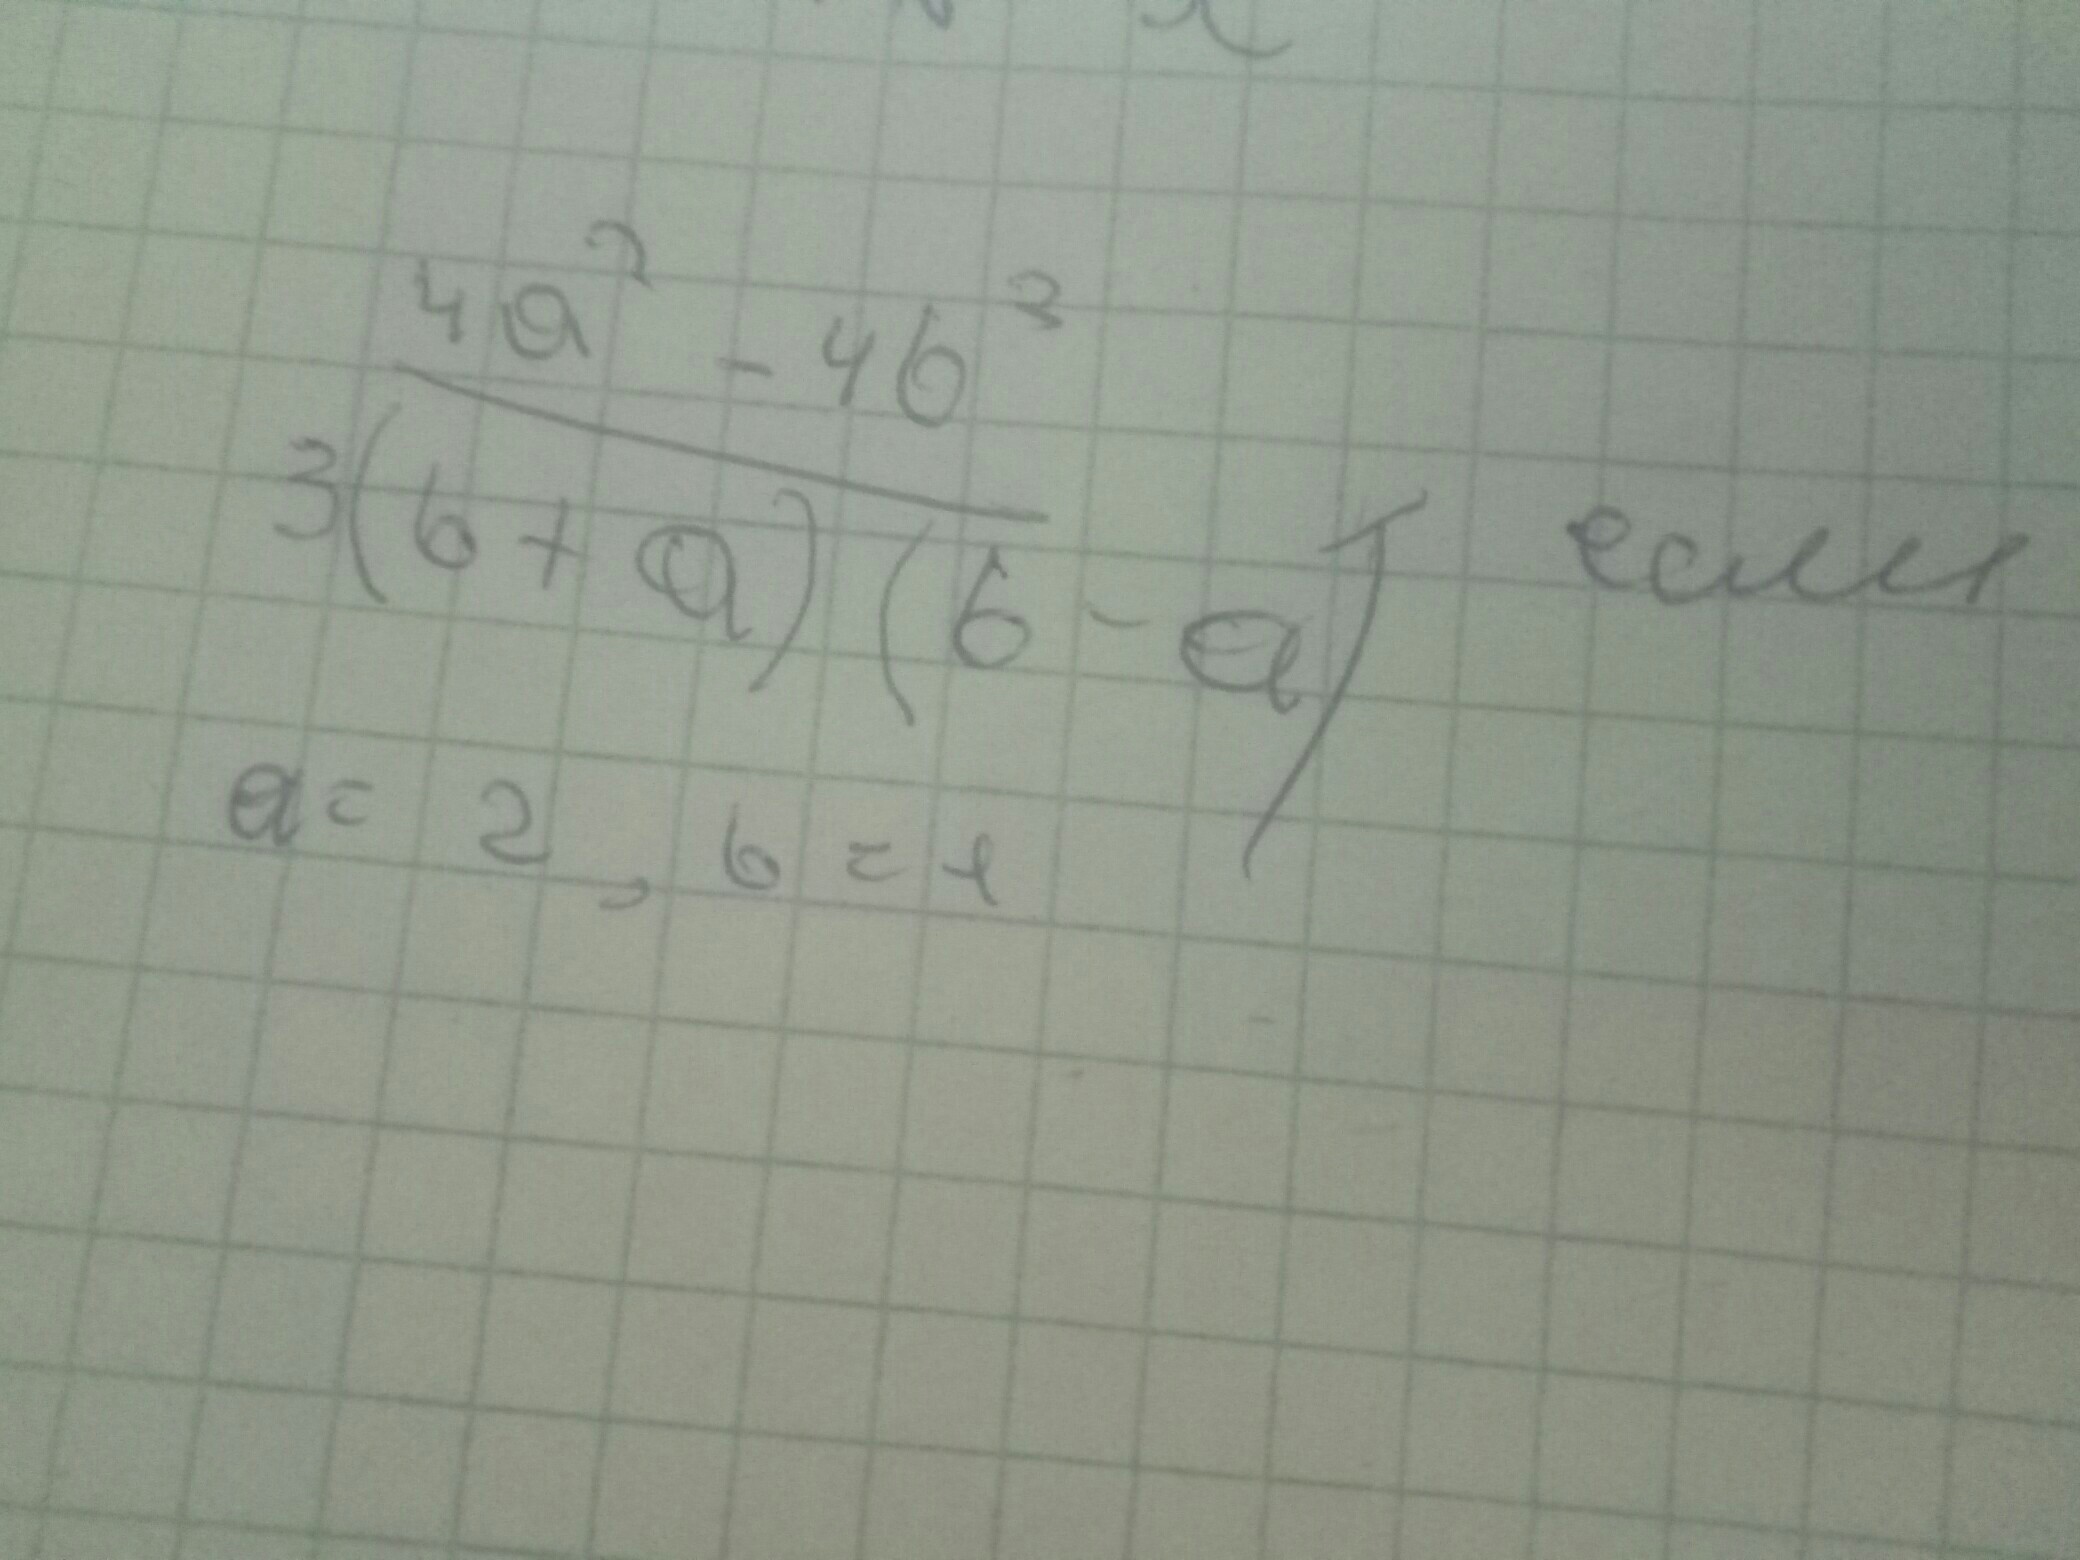 4a² - 4b²
3(b + a)(b - a) если
a = 2, b = 1